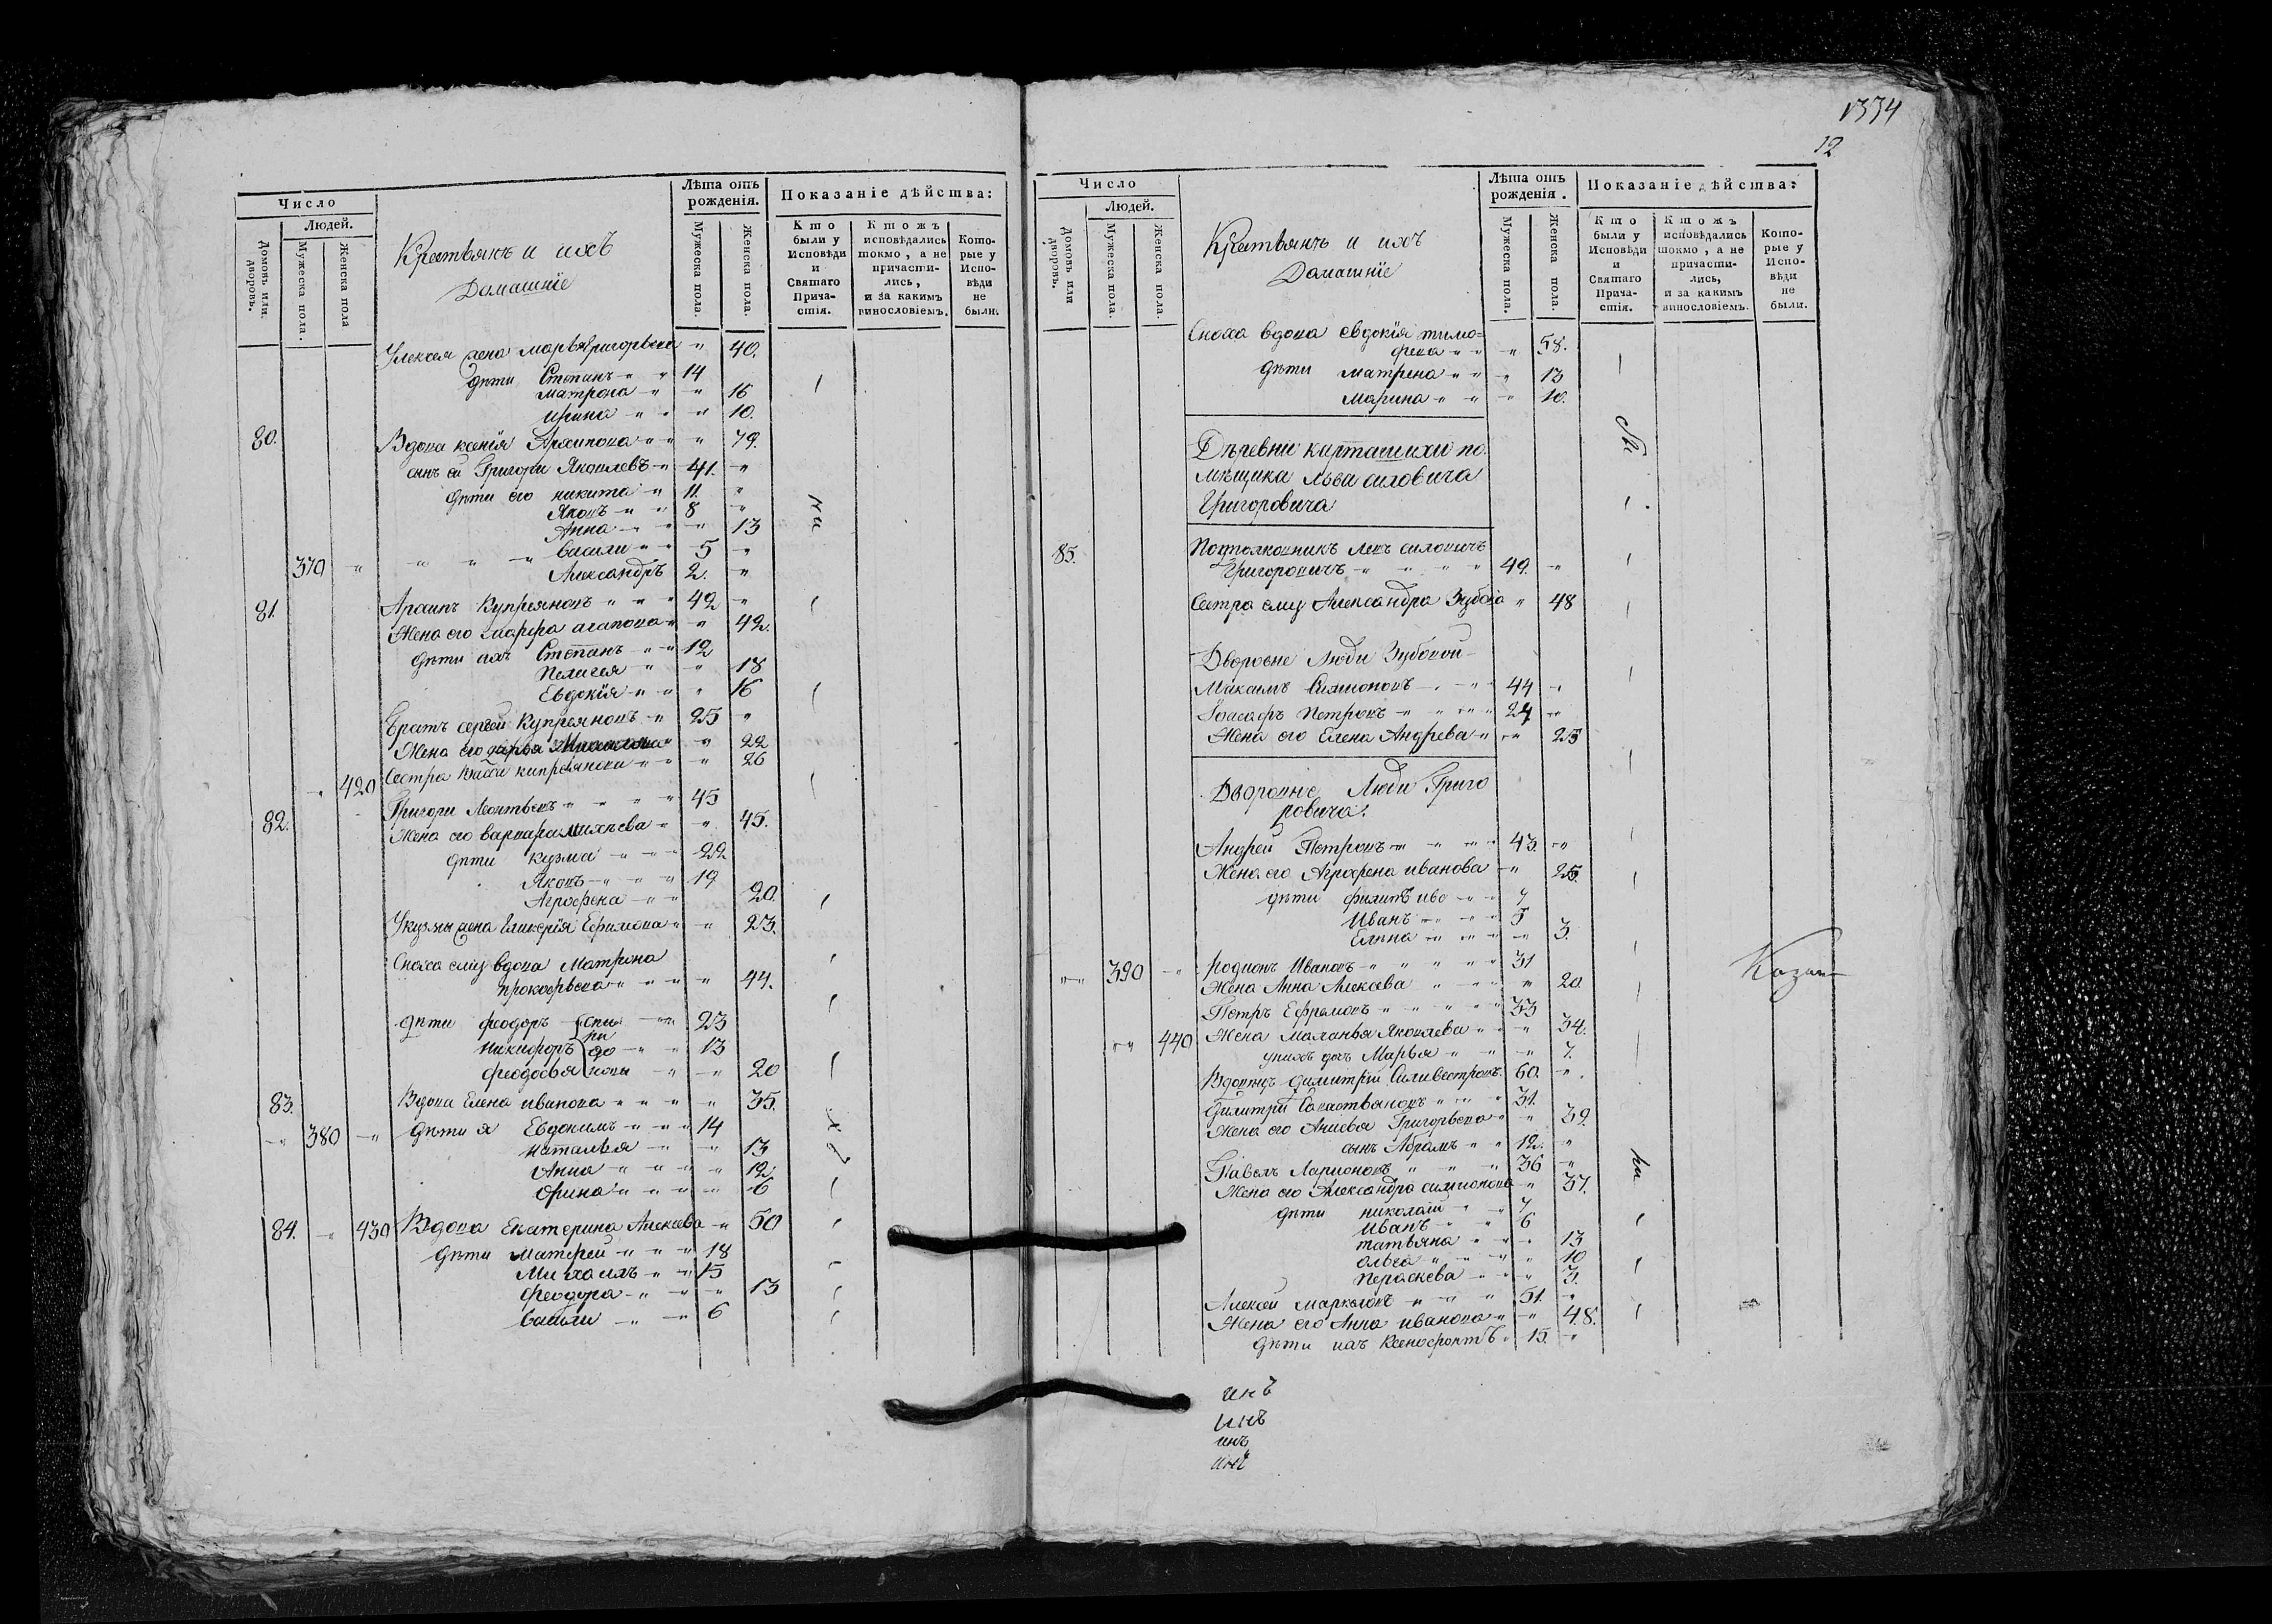 1334
12
Число
Людей.
Домовъ или дворовъ.
Мужеска пола.
Женска пола
Крестьянъ и ихъ
Домашніе
Лѣта отъ рожденія.
Мужеска пола.
Женска пола.
Показаніе дѣйства:
Кто были у Исповѣди и Святаго Прича- стія.
Ктожъ исповѣдались токмо, а не причасти- лись, и за какимъ винословіемъ.
Кото- рые у Испо- вѣди не были.
Уалексея жена Марья Григорьева " 40.
дѣти Степанъ " " 14
матрона " " 16
ирина " " " 10.
80. Вдова ксенія Архипова " " " 79.
сынъ ей Григори Яковлевъ " 41. "
дѣти его никита " 11. "
Яковъ " " 8 "
Анна " " " 13
васили " " 5 "
370 " " " " Александръ 2. "
81. Архипъ Купреяновъ " " " 42 "
Жена его марфа агапова " " 42.
дѣти ихъ Степанъ " " 12
Пелагея " " 18
Евдокія " " " 16
Братъ сергей Купреяновъ " 25 "
Жена его " 22
" 420 Сестра купреянова " " " 26
82. Григори Леонтьевъ " " " " 45
Жена его варвара михеева " " 45.
дѣти кузма " " " 22
Яковъ " " " 19
Агрофена " " 20.
Укузмы жена Гликерія Ефимова " " 23.
Сноха ему вдова Матрона
прокофьева " " " " 44.
дѣти феодоръ " " 23
никифоръ " " 13
феодосья " " 20
83. Вдова Елена иванова " " " " 35.
" 380 " дѣти я Евдокимъ " " " 14
наталья " " 13
Анна " " " " 12
Орина " " " " 6
84. " 430 Вдова Екатерина Алексева " 50
дѣти Матфей " " " 18
Михаилъ " " 15
феодора " " " 13
васили " " 6
Число
Людей.
Домовъ или дворовъ.
Мужеска пола.
Женска пола.
Крестьянъ и ихъ
Домашніе
Лѣта отъ рожденія.
Мужеска пола.
Женска пола.
Показаніе дѣйства:
Кто были у Исповѣди и Святаго Прича- стія.
Ктожъ исповѣдались токмо, а не причасти- лись, и за какимъ винословіемъ.
Кото- рые у Испо- вѣди не были.
Сноха вдова евдокія тимо=
феева " " " 58.
дѣти матрена " " " 13
Марина " " " 10.
Дѣревни карташихи по
мѣщика льва силовича
Григоровича
85. Подполковникъ левъ силовичъ
Григоровичъ " " " " 49. "
Сестра ему Александра Зубова " 48
Дворовие Люди Зубовой
Максимъ Симионовъ " " " 44 "
Іоасафъ Петровъ " " " " 24 "
Жена его Елена Андрева " " " 25
Дворовие Люди Григо
ровича.
Андреи Петровъ " " " " 43. "
Жена его Агрофена иванова " " 25.
дѣти " " 7
Иванъ " " " 5
Елена " " " " 3.
" 390 " Родионъ Ивановъ " " " " " 31
Жена Анна Алексева " " " " 20
Петръ Ефремовъ " " " " " 33
" 440 Жена Маланья Яковлева " " " 34.
унихъ дочь Марья " " " 7.
Вдовецъ димитрии Силивестровъ. 60. "
Димитри Савастьяновъ " " " 31.
Жена его Анисья Григорьева " " 39.
сынъ Абрамъ " " 12. "
Павелъ Ларионовъ " " " 36 "
Жена его Александра симионова " 37.
дѣти николаи " " 7
Иванъ " " 6
татьяна " " " 13
олга " " " " 10
Пераскева " " " 3.
Алексеи марковъ " " " 51. "
Жена его Анна иванова " " 48.
дѣти ихъ Ксенофонтъ " 15. "
инъ
инъ
инъ